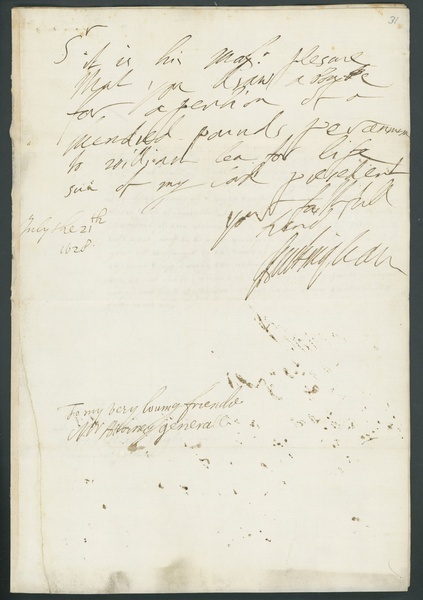 31
Sr it is his Maj: plesure
that you draw a booke
for a pension of a
hundred pounds per annum
to william lea for life
sun of my lord president
your faithfull
frend
Buckingham
July the 21th
1628
To my very loving friende
Mr Attorney generall